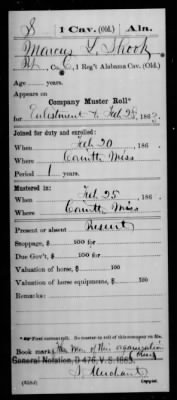 S | 1 Cav. (Old.) | Ala.
Marcus L. Shook
Pt., Co. C, 1 Reg't Alabama Cav. (Old.)
Age years.
Appears on
Company Muster Roll*
for Enlistment to Feb 28, 186
Joined for duty and enrolled:
When Feb 20, 186
Where Corinth Miss
Period 1 years.
Mustered in:
When Feb. 25, 186
Where Corinth Miss
Present or absent Present
Stoppage, $ 100 for
Due Gov't, $ 100 for
Valuation of horse, $ 100
Valuation of horse equipments, $ 100
Remarks:
*For first enrollment. No muster in roll of this company on file.
Book mark: of this organization
General Notation, D 476, V. S. 1865.
Merchant
(358d) Copyist.